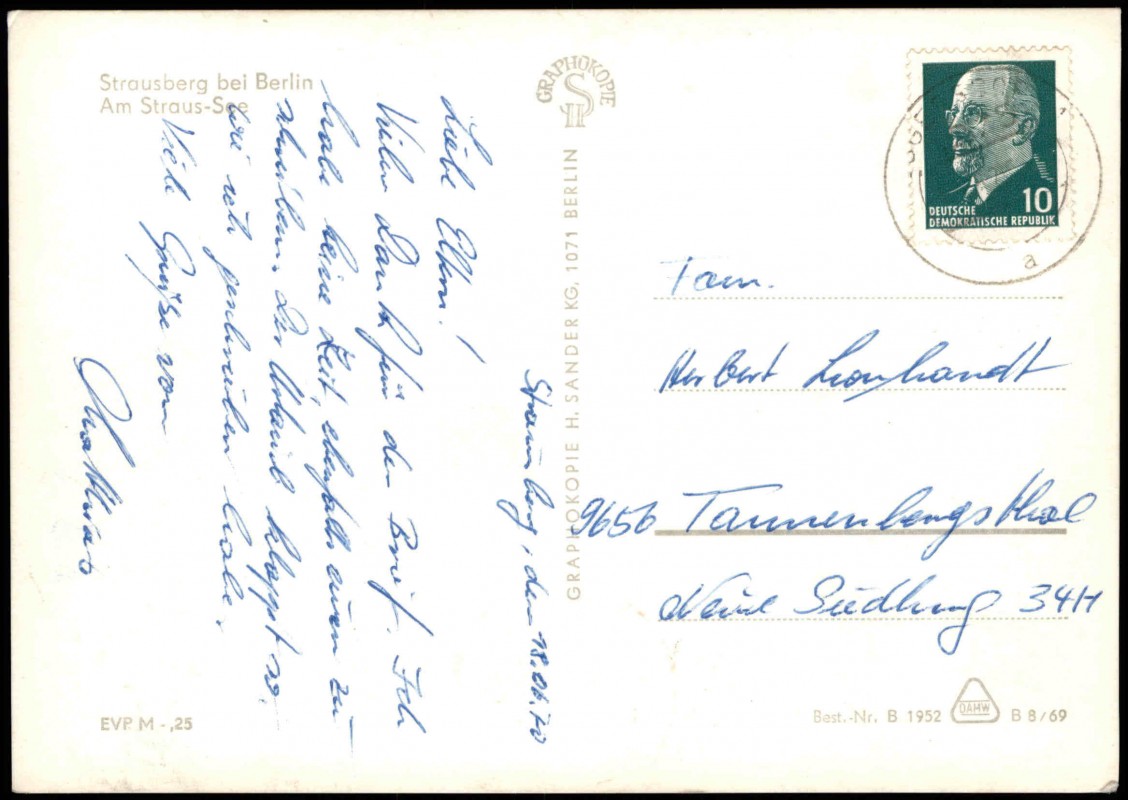 Strausberg bei Berlin
Am Straus-See
GRAPHOKOPIE
H S
Strausberg, den 18.06.70
Liebe Eltern!
Vielen Dank für den Brief. Ich
habe keine Zeit, ebenfalls einen zu
schreiben. Der Urlaub klappt so,
wie ich geschrieben habe.
Viele Grüße von
Matthias
GRAPHOKOPIE H. SANDER KG, 1071 BERLIN
10
DEUTSCHE
DEMOKRATISCHE REPUBLIK
a
Fam.
Herbert Leonhardt
9656 Tannenbergsthal
Neue Siedlung 34H
EVP M -,25
Best.-Nr. B 1952
DAMW
B 8/69